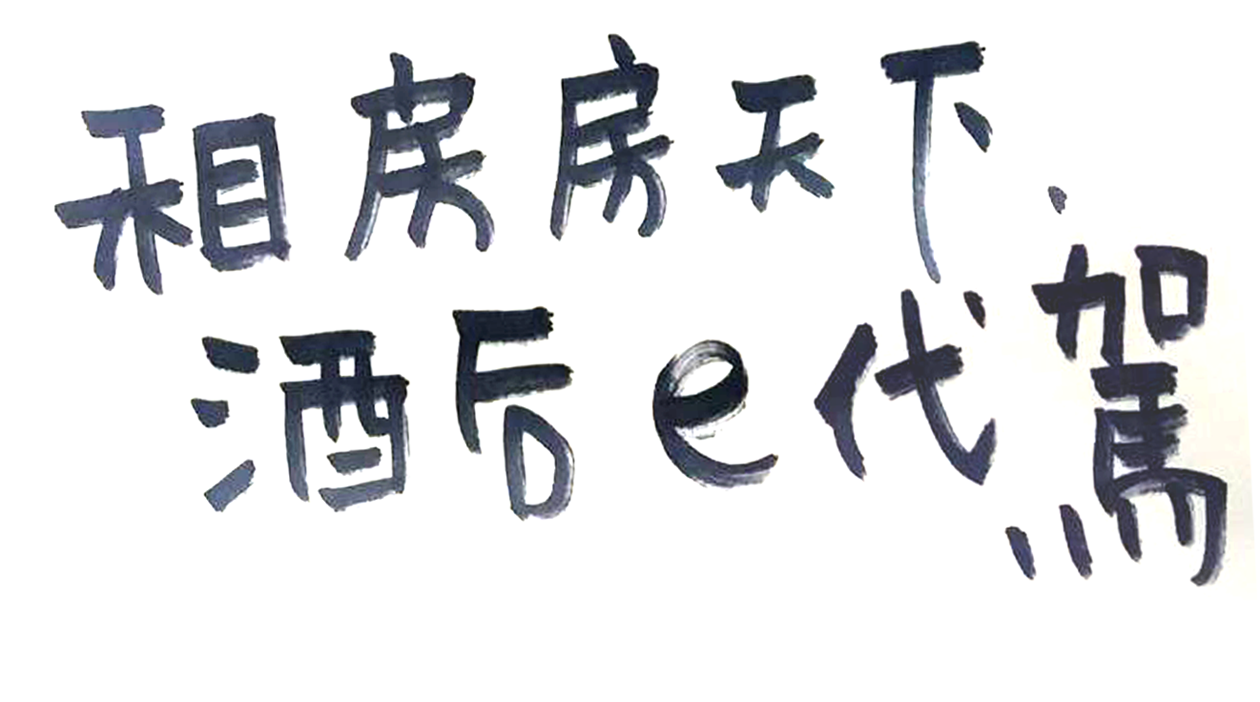 租房房天下.
酒后e代駕